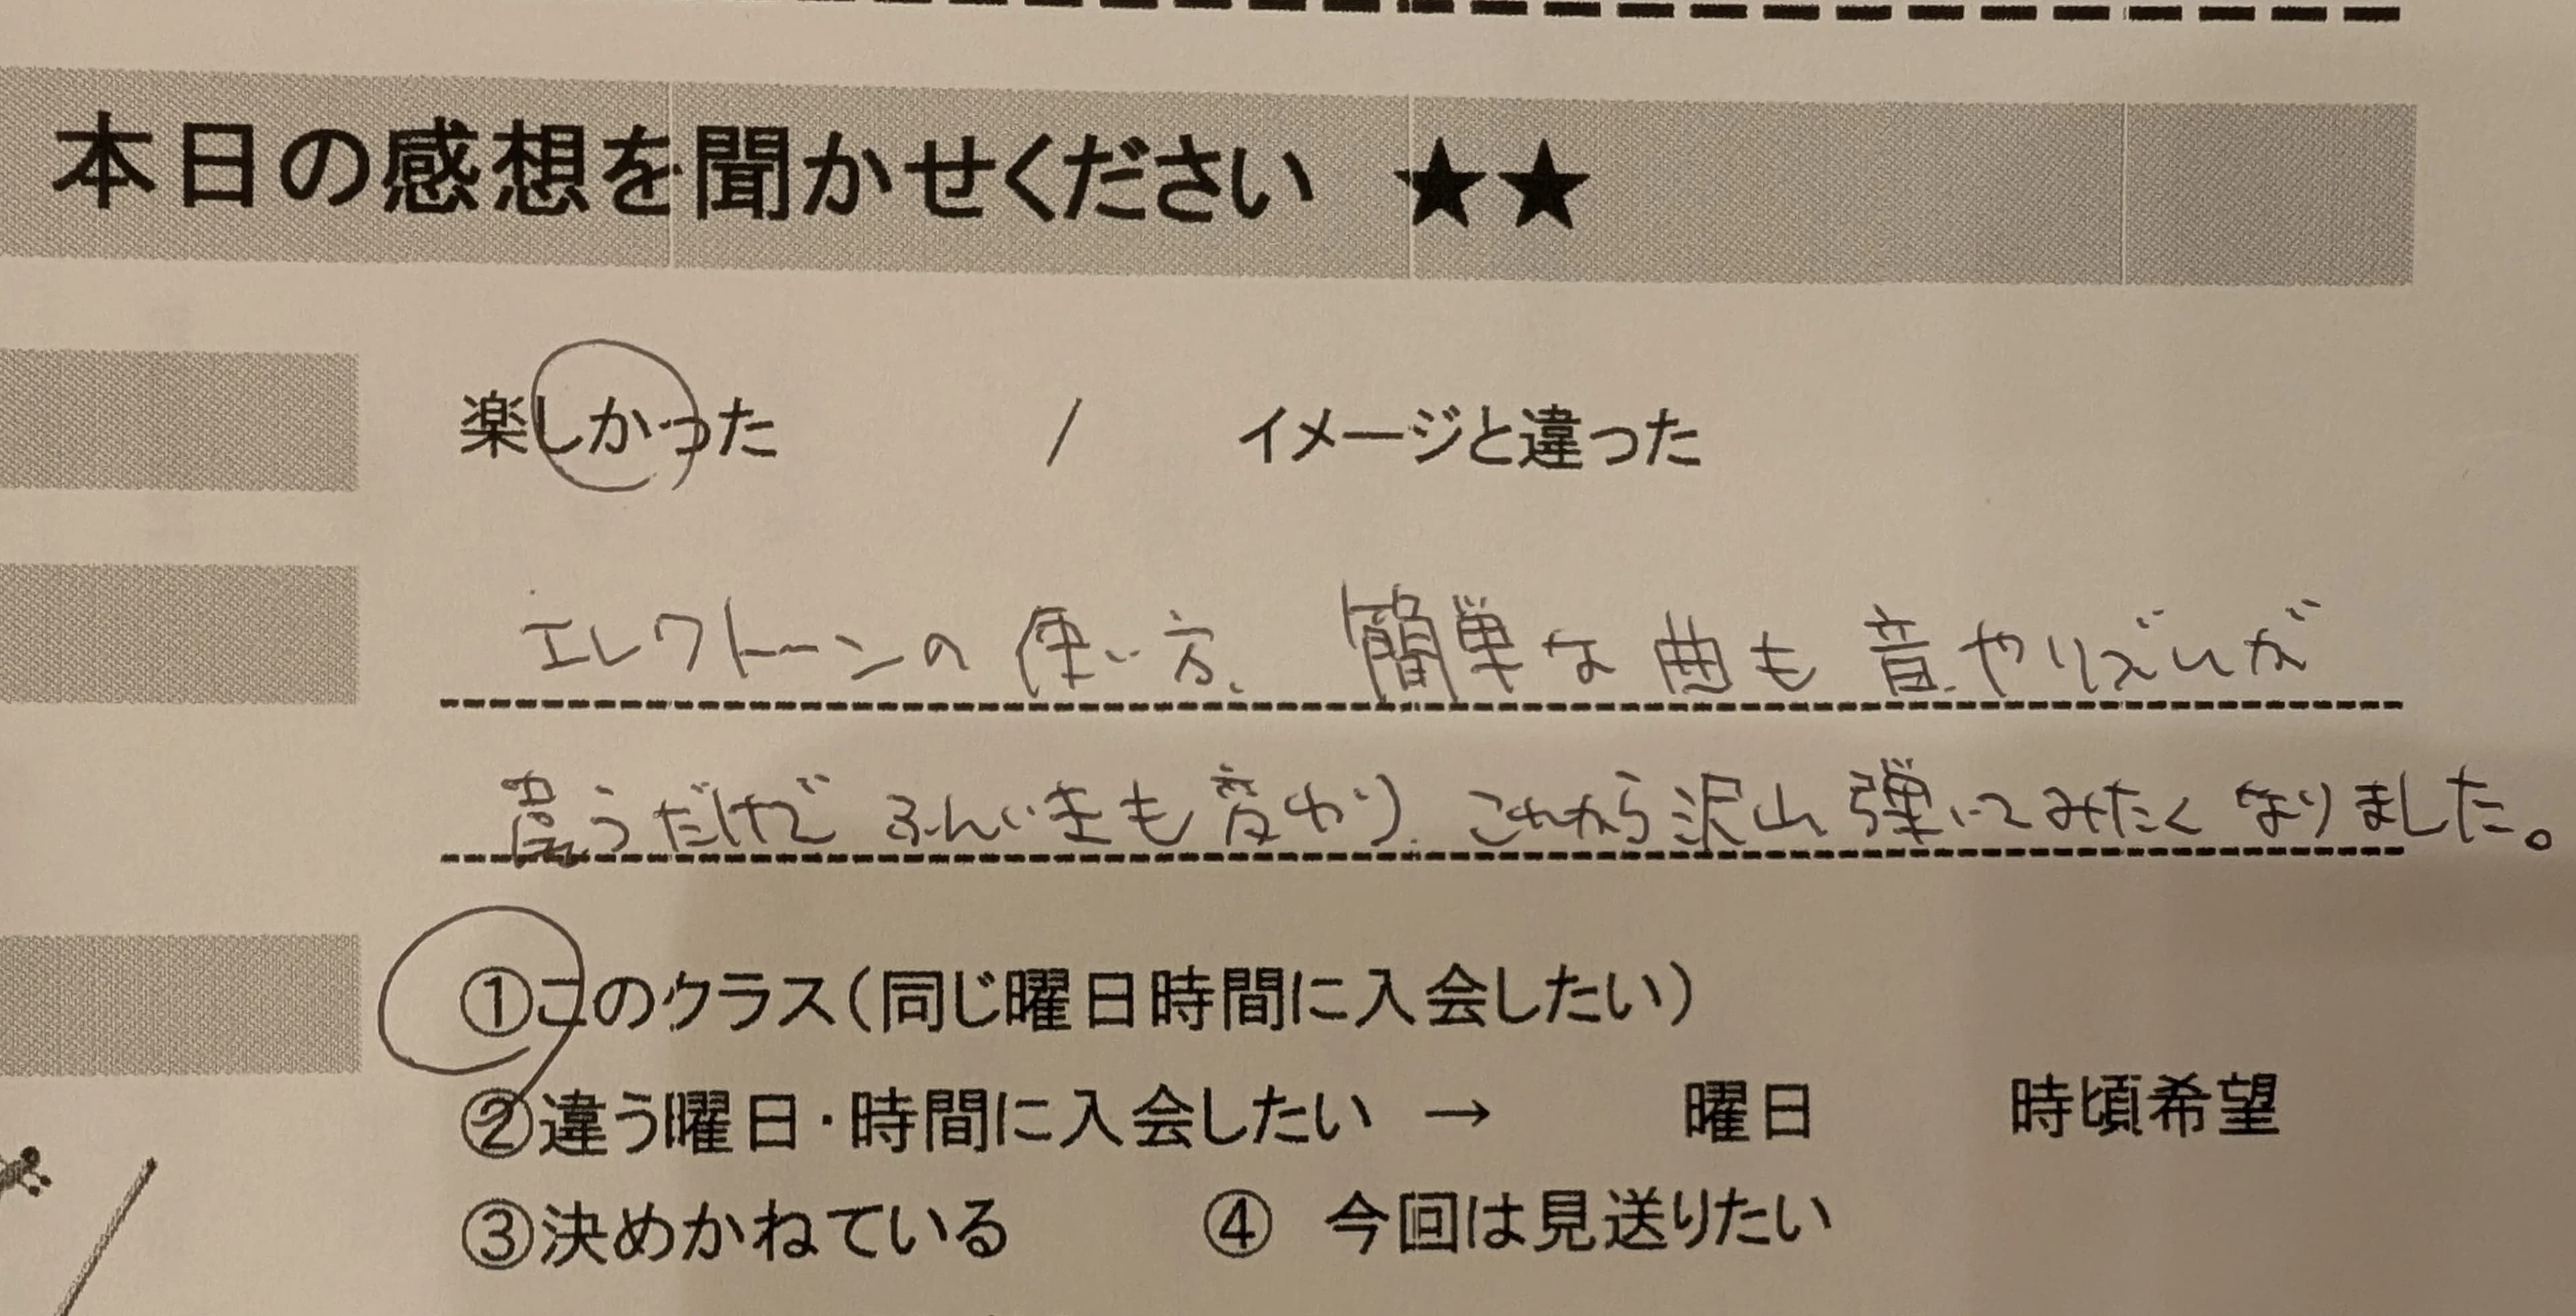 本日の感想を聞かせください ★★
楽しかった / イメージと違った
エレクトーンの使い方、簡単な曲も音やリズムが
違うだけでふんい気も変わり、これから沢山弾いてみたくなりました。
①このクラス(同じ曜日時間に入会したい)
②違う曜日・時間に入会したい → 曜日 時頃希望
③決めかねている ④ 今回は見送りたい